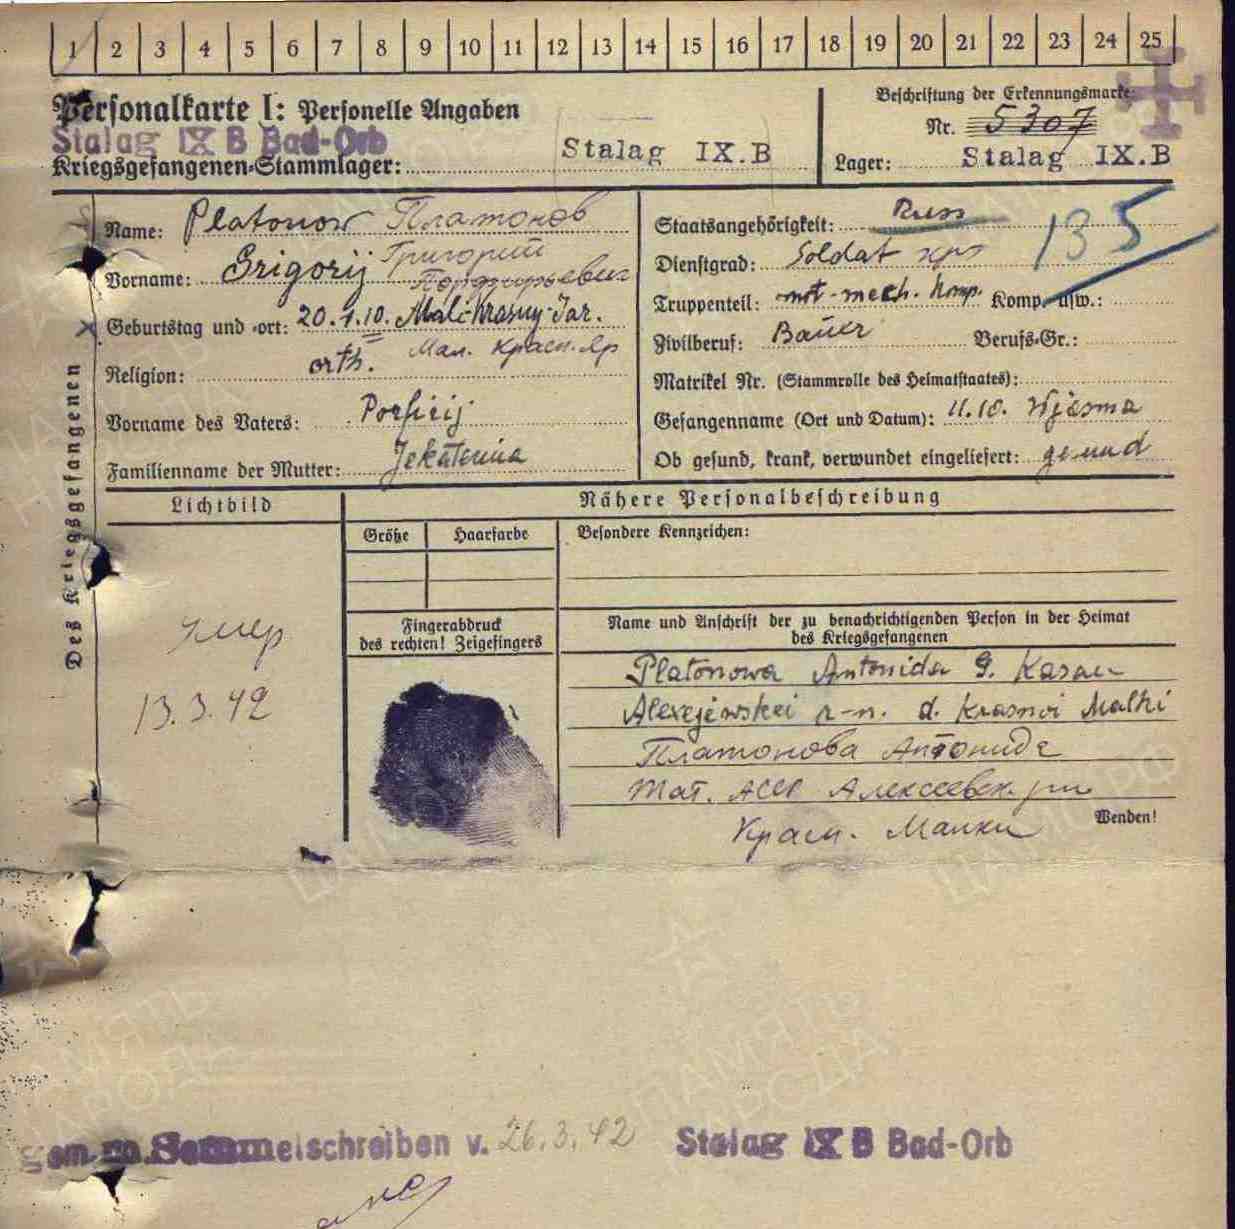 1 2 3 4 5 6 7 8 9 10 11 12 13 14 15 16 17 18 19 20 21 22 23 24 25
Personalkarte I: Personelle Angaben
Stalag IX B Bad-Orb
Kriegsgefangenen-Stammlager: Stalag IX.B
Beschriftung der Erkennungsmarke:
Nr. 5307
Lager: Stalag IX.B
Des Kriegsgefangenen
Name: Platonow Платонов
Vorname: Grigorij Григорий
Порфирьевич
Geburtstag und -ort: 20.1.10. Mali-Krasny-Jar.
Мал. Красн. Яр
Religion: orth.
Vorname des Vaters: Porfirij
Familienname der Mutter: Jekaterina
Staatsangehörigkeit: Russ
135
Dienstgrad: Soldat кр
Truppenteil: mot-mech. Komp. Komp. usw.:
Zivilberuf: Bauer Berufs-Gr.:
Matrikel Nr. (Stammrolle des Heimatstaates):
Gefangenname (Ort und Datum): 11.10. Wjasma
Ob gesund, krank, verwundet eingeliefert: gesund
Lichtbild
умер
13.3.42
Nähere Personalbeschreibung
Größe Haarfarbe Besondere Kennzeichen:
Fingerabdruck
des rechten! Zeigefingers
Name und Anschrift der zu benachrichtigenden Person in der Heimat
des Kriegsgefangenen
Platonowa Antonida G. Kasan
Alexejewskei r-n. d. Krasnoi Malki
Платонова Антонида
Тат. АССР Алексеевск. рн
Красн. Малки
Wenden!
Sammelschreiben v. 26.3.42 Stalag IX B Bad-Orb